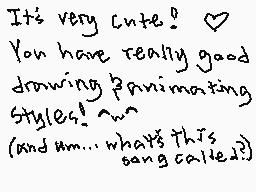 It's very cute! ♡
You have really good
drawing & animating
styles! ^w^
(and um... what's this
song called?)